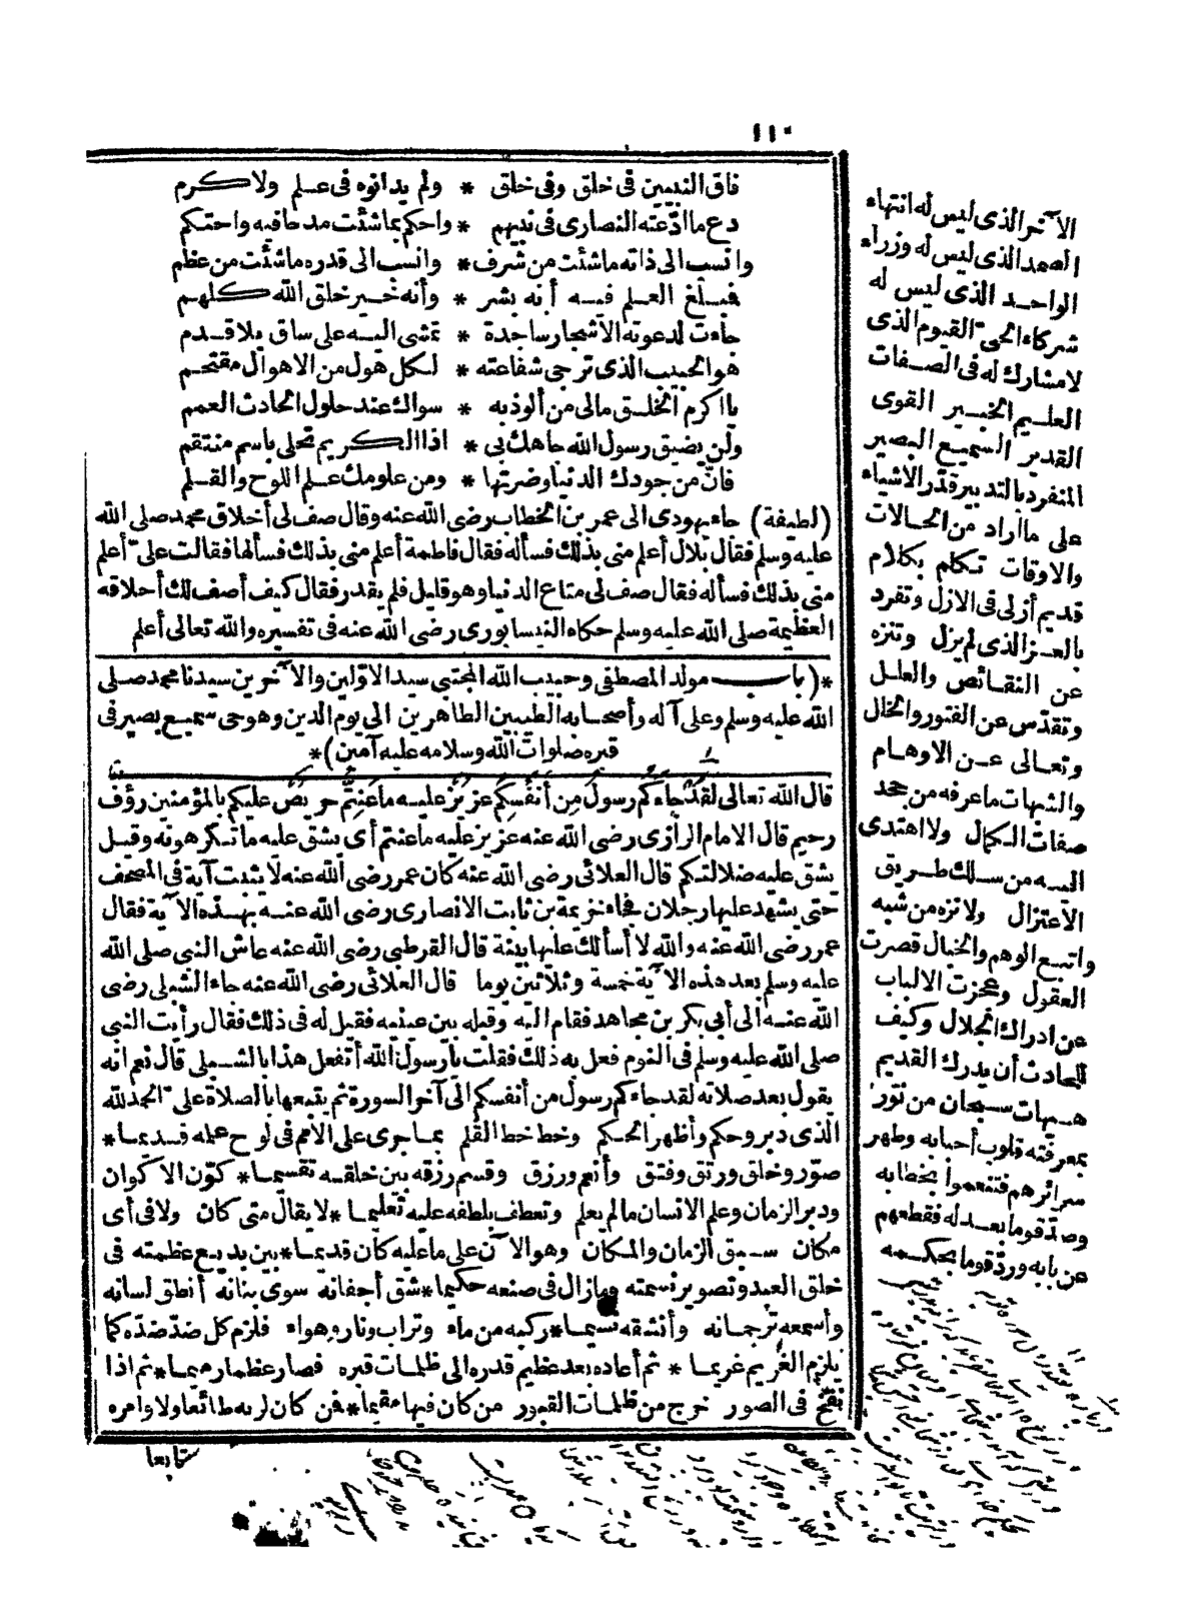 ١١٠
فاق النبيين فى خلق وفى خلق * ولم يدانوه فى علم ولا كرم
دع ما ادّعته النصارى فى نبيهم * واحكم بما شئت مدحا فيه واحتكم
وانسب الى ذاته ما شئت من شرف * وانسب الى قدره ما شئت من عظم
فبلغ العلم فيه أنه بشر * وأنه خير خلق الله كلهم
جاءت لدعوته الأشجار ساجدة * تمشى اليه على ساق بلا قدم
هو الحبيب الذى ترجى شفاعته * لكل هول من الاهوال مقتحم
يا اكرم الخلق مالى من ألوذ به * سواك عند حلول الحادث العمم
ولن يضيق رسول الله جاهك بى * اذا الكريم تحلى باسم منتقم
فانّ من جودك الدنيا وضرتها * ومن علومك علم اللوح والقلم
(لطيفة) جاء يهودى الى عمر بن الخطاب رضى الله عنه وقال صف لى أخلاق محمد صلى الله
عليه وسلم فقال بلال أعلم منى بذلك فسأله فقال فاطمة أعلم منى بذلك فسألها فقالت علىّ أعلم
منى بذلك فسأله فقال صف لى متاع الدنيا وهو قليل فلم يقدر فقال كيف أصف لك أخلاقه
العظيمة صلى الله عليه وسلم حكاه النيسابورى رضى الله عنه فى تفسيره والله تعالى أعلم
*(باب مولد المصطفى وحبيب الله المجتبى سيد الاوّلين والآخرين سيدنا محمد صلى
الله عليه وسلم وعلى آله وأصحابه الطيبين الطاهرين الى يوم الدين وهو حى سميع بصير فى
قبره صلوات الله وسلامه عليه آمين)*
قال الله تعالى لقد جاءكم رسول من أنفسكم عزيز عليه ما عنتم حريص عليكم بالمؤمنين رؤف
رحيم قال الامام الرازى رضى الله عنه عزيز عليه ما عنتم أى يشق عليه ما تكرهونه وقيل
يشق عليه ضلالتكم قال العلائى رضى الله عنه كان عمر رضى الله عنه لا يثبت آية فى المصحف
حتى يشهد عليها رجلان فجاء خزيمة بن ثابت الانصارى رضى الله عنه بهذه الآية فقال
عمر رضى الله عنه والله لا أسألك عليها بينة قال القرطبى رضى الله عنه عاش النبى صلى الله
عليه وسلم بعد هذه الآية خمسة وثلاثين يوما قال العلائى رضى الله عنه جاء الشبلى رضى
الله عنه الى أبى بكر بن مجاهد فقام اليه وقبله بين عينيه فقيل له فى ذلك فقال رأيت النبى
صلى الله عليه وسلم فى النوم فعل به ذلك فقلت يا رسول الله أتفعل هذا بالشبلى قال نعم انه
يقول بعد صلاته لقد جاءكم رسول من أنفسكم الى آخر السورة ثم يتبعها بالصلاة علىّ الحمد لله
الذى دبر وحكم وأظهر الحكم وخط خط القلم بما جرى على الأمم فى لوح عمله قديما*
صوّر وخلق ورتق وفتق وأنعم ورزق وقسم رزقه بين خلقه تقسيما* كوّن الاكوان
ودبر الزمان وعلم الانسان ما لم يعلم وتعطف بلطفه عليه تعليما* لا يقال متى كان ولا فى أى
مكان سبق الزمان والمكان وهو الآن على ما عليه كان قديما* بين بديع عظمته فى
خلق العبد وتصوير نسمته وما زال فى صنعه حكيما* شق أجفانه سوى بنانه أنطق لسانه
وأسمعه ترجمانه وأنشقه نسيما* ركبه من ماء وتراب ونار وهواء فلزم كل ضدّ ضدّه كما
يلزم الغريم غريما* ثم أعاده بعد عظيم قدره الى ظلمات قبره فصار عظما رميما* ثم اذا
نفخ فى الصور خرج من ظلمات القبور من كان فيها مقيما* فمن كان لربه طائعا ولاوامره
سابعا
الآخر الذى ليس له انتهاء
الصمد الذى ليس له وزراء
الواحد الذى ليس له
شركاء الحى القيوم الذى
لا مشارك له فى الصفات
العليم الخبير القوى
القدير السميع البصير
المنفرد بالتدبير قدّر الاشياء
على ما أراد من الحالات
والاوقات تكلم بكلام
قديم أزلى فى الازل وتفرد
بالعز الذى لم يزل وتنزه
عن النقائص والعلل
وتقدّس عن الفتور والخال
وتعالى عن الاوهام
والشبهات ما عرفه من جحد
صفات الكمال ولا اهتدى
اليه من سلك طريق
الاعتزال ولا نزه من شبه
واتبع الوهم والخيال قصرت
العقول وعجزت الالباب
عن ادراك الجلال وكيف
للحادث أن يدرك القديم
هيهات سبحان من نور
بمعرفته قلوب أحبابه وطهر
سرائرهم فتنعموا بخطابه
وصدّ قوما بعدله فقطعهم
عن بابه وردّ قوما بحكمه